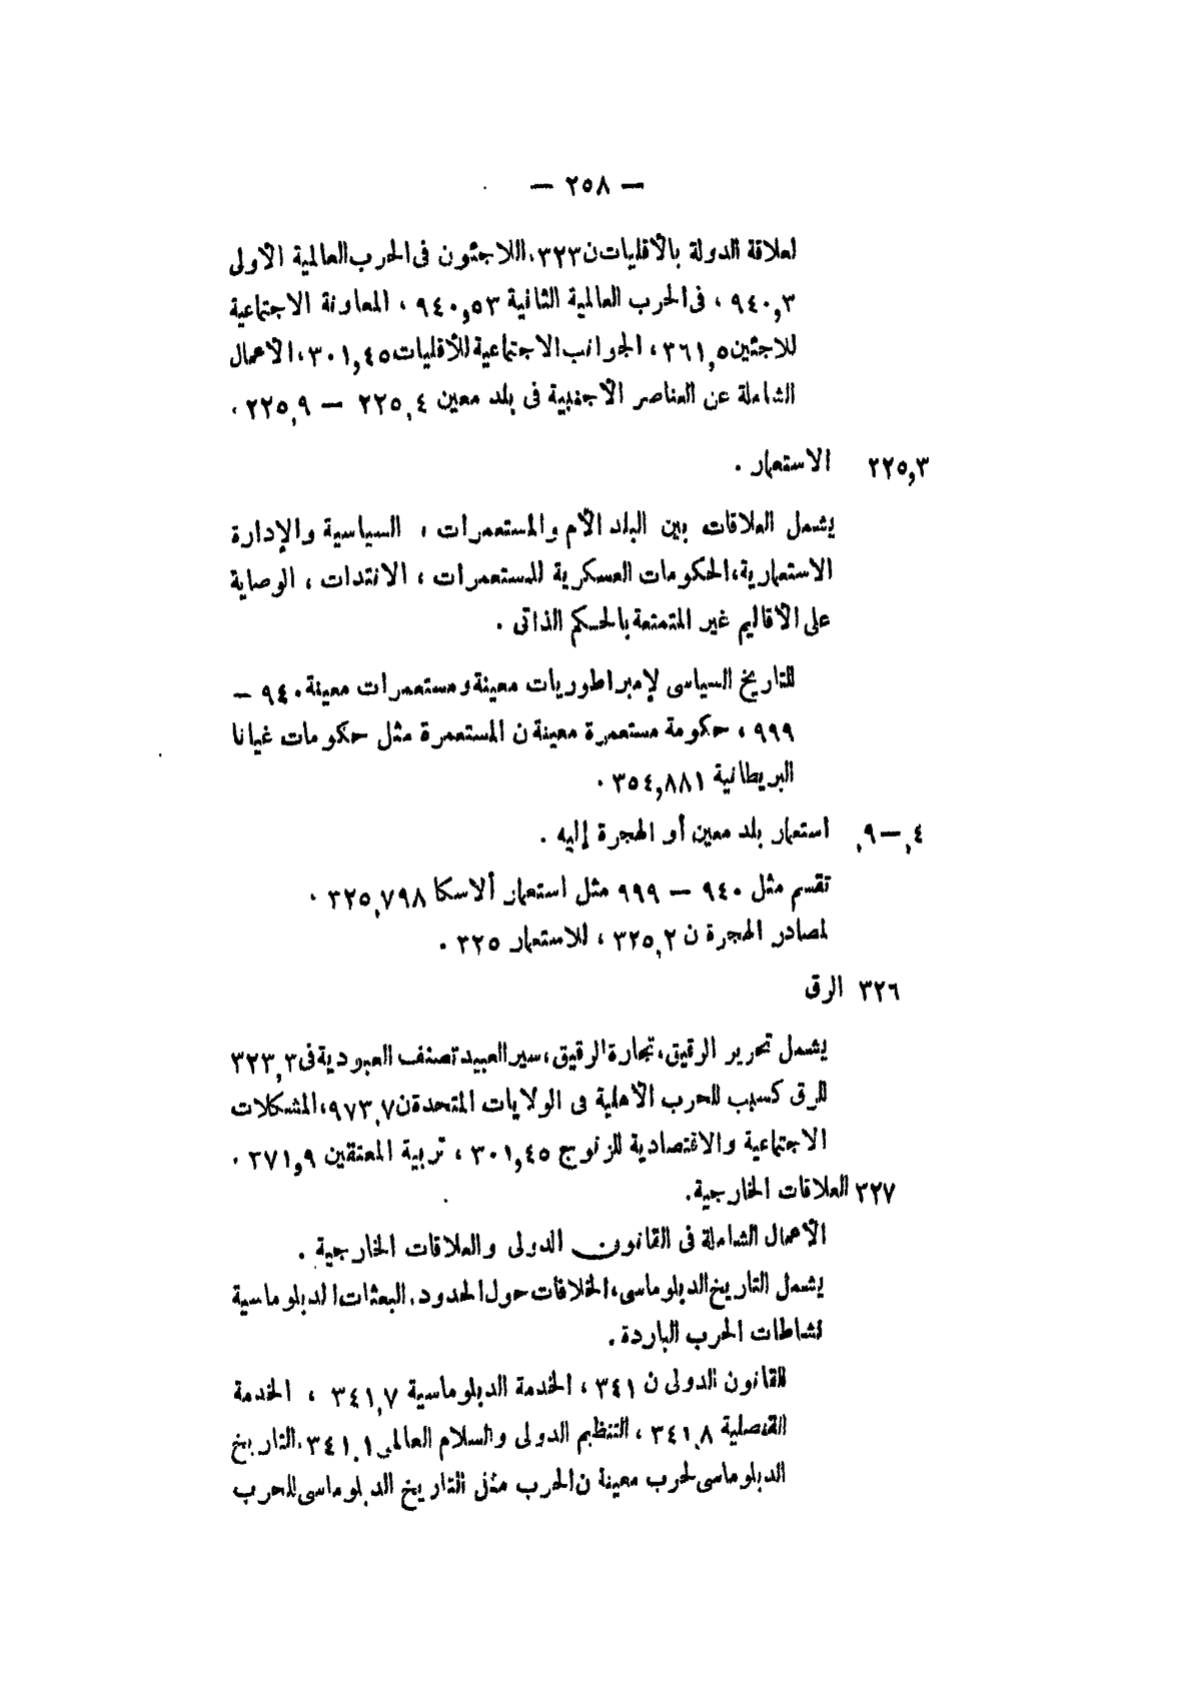 — ٢٥٨ —
لعلاقة الدولة بالأقليات ن ٣٢٣، اللاجئون فى الحرب العالمية الأولى
٩٤٠,٣ ، فى الحرب العالمية الثانية ٩٤٠,٥٣ ، المعاونة الاجتماعية
للاجئين ٣٦١,٥ ، الجوانب الاجتماعية للأقليات ٣٠١,٤٥ ، الأعمال
الشاملة عن العناصر الأجنبية فى بلد معين ٢٢٥,٤ — ٢٢٥,٩ .
٢٢٥,٣ الاستعمار .
يشمل العلاقات بين البلد الأم والمستعمرات ، السياسية والإدارة
الاستعمارية، الحكومات العسكرية للمستعمرات ، الانتدات ، الوصاية
على الأقاليم غير المتمتعة بالحكم الذاتى .
للتاريخ السياسى لإمبراطوريات معينة ومستعمرات معينة ٩٤٠ —
٩٩٩ ، حكومة مستعمرة معينة ن المستعمرة مثل حكومات غيانا
البريطانية ٣٥٤,٨٨١ .
٤, — ٩, استعمار بلد معين أو الهجرة إليه .
تقسم مثل ٩٤٠ — ٩٩٩ مثل استعمار ألاسكا ٣٢٥,٧٩٨ .
لمصادر الهجرة ن ٣٢٥,٢ ، للاستعمار ٣٢٥ .
٣٢٦ الرق
يشمل تحرير الرقيق، تجارة الرقيق، سير العبيد تصنف العبودية فى ٣٢٣,٣
للرق كسبب للحرب الأهلية فى الولايات المتحدة ن ٩٧٣,٧، المشكلات
الاجتماعية والاقتصادية للزنوج ٣٠١,٤٥ ، تربية المعتقين ٣٧١,٩ .
٣٢٧ العلاقات الخارجية.
الأعمال الشاملة فى القانون الدولى والعلاقات الخارجية .
يشمل التاريخ الدبلوماسى، الخلافات حول الحدود، البعثات الدبلوماسية
نشاطات الحرب الباردة .
للقانون الدولى ن ٣٤١ ، الخدمة الدبلوماسية ٣٤١,٧ ، الخدمة
القنصلية ٣٤١,٨ ، التنظيم الدولى والسلام العالمى ٣٤١,١، التاريخ
الدبلوماسى لحرب معينة ن الحرب مثل التاريخ الدبلوماسى للحرب